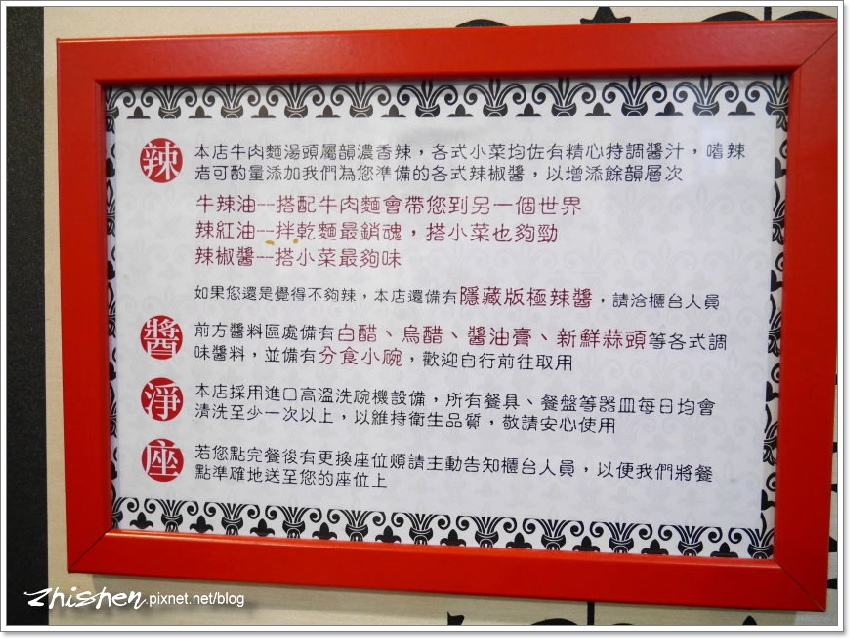 辣
本店牛肉麵湯頭屬韻濃香辣，各式小菜均佐有精心特調醬汁，嗜辣
者可酌量添加我們為您準備的各式辣椒醬，以增添餘韻層次
牛辣油---搭配牛肉麵會帶您到另一個世界
辣紅油---拌乾麵最銷魂，搭小菜也夠勁
辣椒醬---搭小菜最夠味
如果您還是覺得不夠辣，本店還備有隱藏版極辣醬，請洽櫃台人員
醬
前方醬料區處備有白醋、烏醋、醬油膏、新鮮蒜頭等各式調
味醬料，並備有分食小碗，歡迎自行前往取用
淨
本店採用進口高溫洗碗機設備，所有餐具、餐盤等器皿每日均會
清洗至少一次以上，以維持衛生品質，敬請安心使用
座
若您點完餐後有更換座位煩請主動告知櫃台人員，以便我們將餐
點準確地送至您的座位上
zhishen.pixnet.net/blog